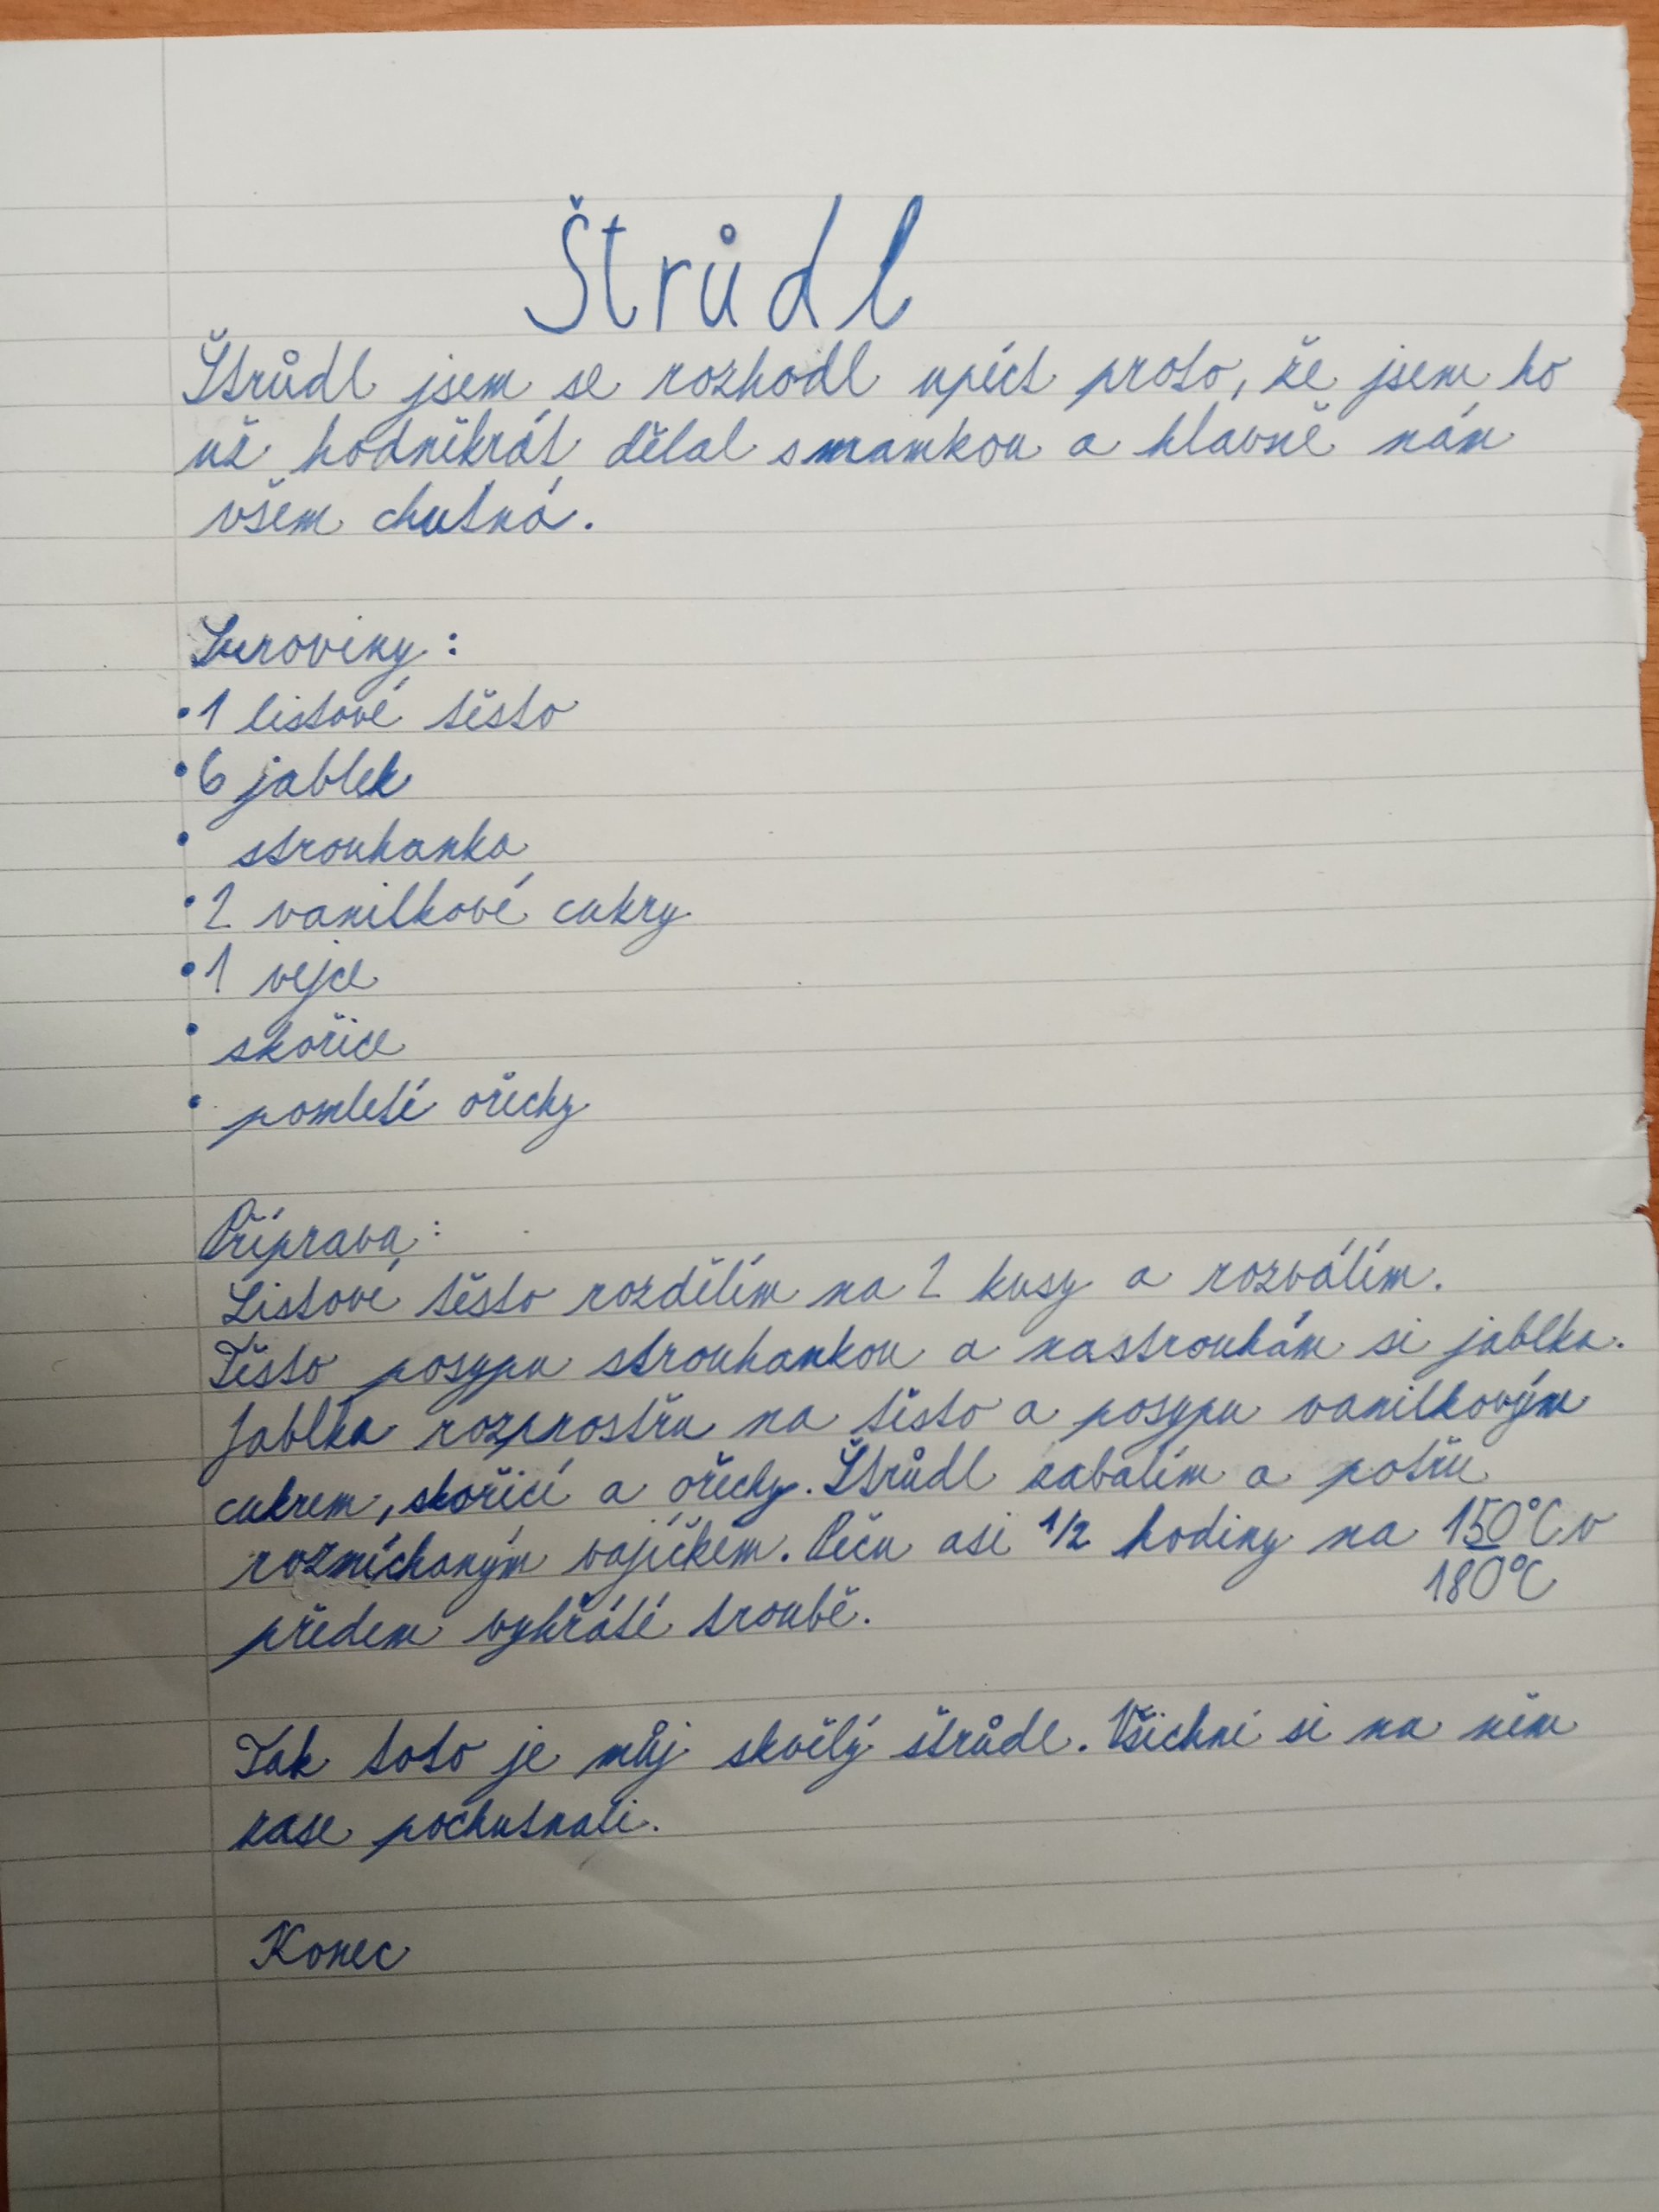 Štrůdl
Štrůdl jsem se rozhodl upéct proto, že jsem ho
už hodněkrát dělal s mamkou a hlavně nám
všem chutná.
Suroviny:
• 1 listové těsto
• 6 jablek
• strouhanka
• 2 vanilkové cukry
• 1 vejce
• skořice
• pomleté ořechy
Příprava:
Listové těsto rozdělím na 2 kusy a rozválím.
Těsto posypu strouhankou a nastrouhám si jablka.
Jablka rozprostřu na těsto a posypu vanilkovým
cukrem, skořicí a ořechy. Štrůdl zabalím a potřu
rozmíchaným vajíčkem. Peču asi 1/2 hodiny na 150°C v
180°C
předem vyhřáté troubě.
Tak toto je můj skvělý štrůdl. Všichni si na něm
zase pochutnali.
Konec